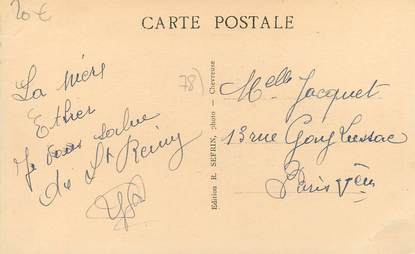 20€
CARTE POSTALE
78)
La mère
Esther
Je vous salue
de St Remy
Edition R. SEFRIN, photo - Chevreuse
Melle Jacquet
13 rue Gay Lussac
Paris Vème